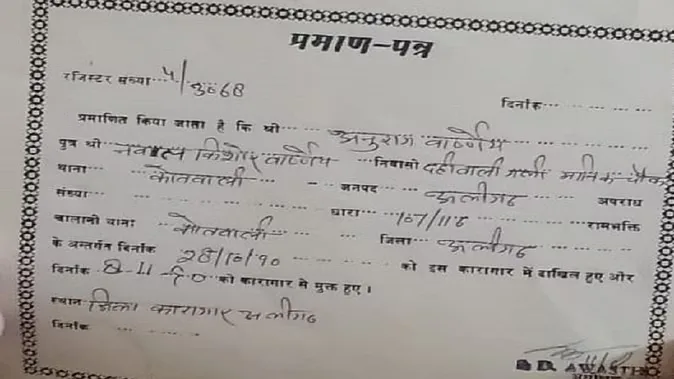 प्रमाण-पत्र
रजिस्टर संख्या
दिनांक
प्रमाणित किया जाता है कि श्री अनुराग वार्ष्णेय
पुत्र श्री किशोर वार्ष्णेय निवासी दहीवाली गली मानिक चौक
थाना कोतवाली जनपद अलीगढ़ अपराध
संख्या धारा 107/116 रामभक्ति
चालानी थाना कोतवाली जिला अलीगढ़
के अन्तर्गत दिनांक 28/10/90 को इस कारागार में दाखिल हुए और
दिनांक को कारागार से मुक्त हुए।
स्थान जिला कारागार अलीगढ़
दिनांक
AWASTHI